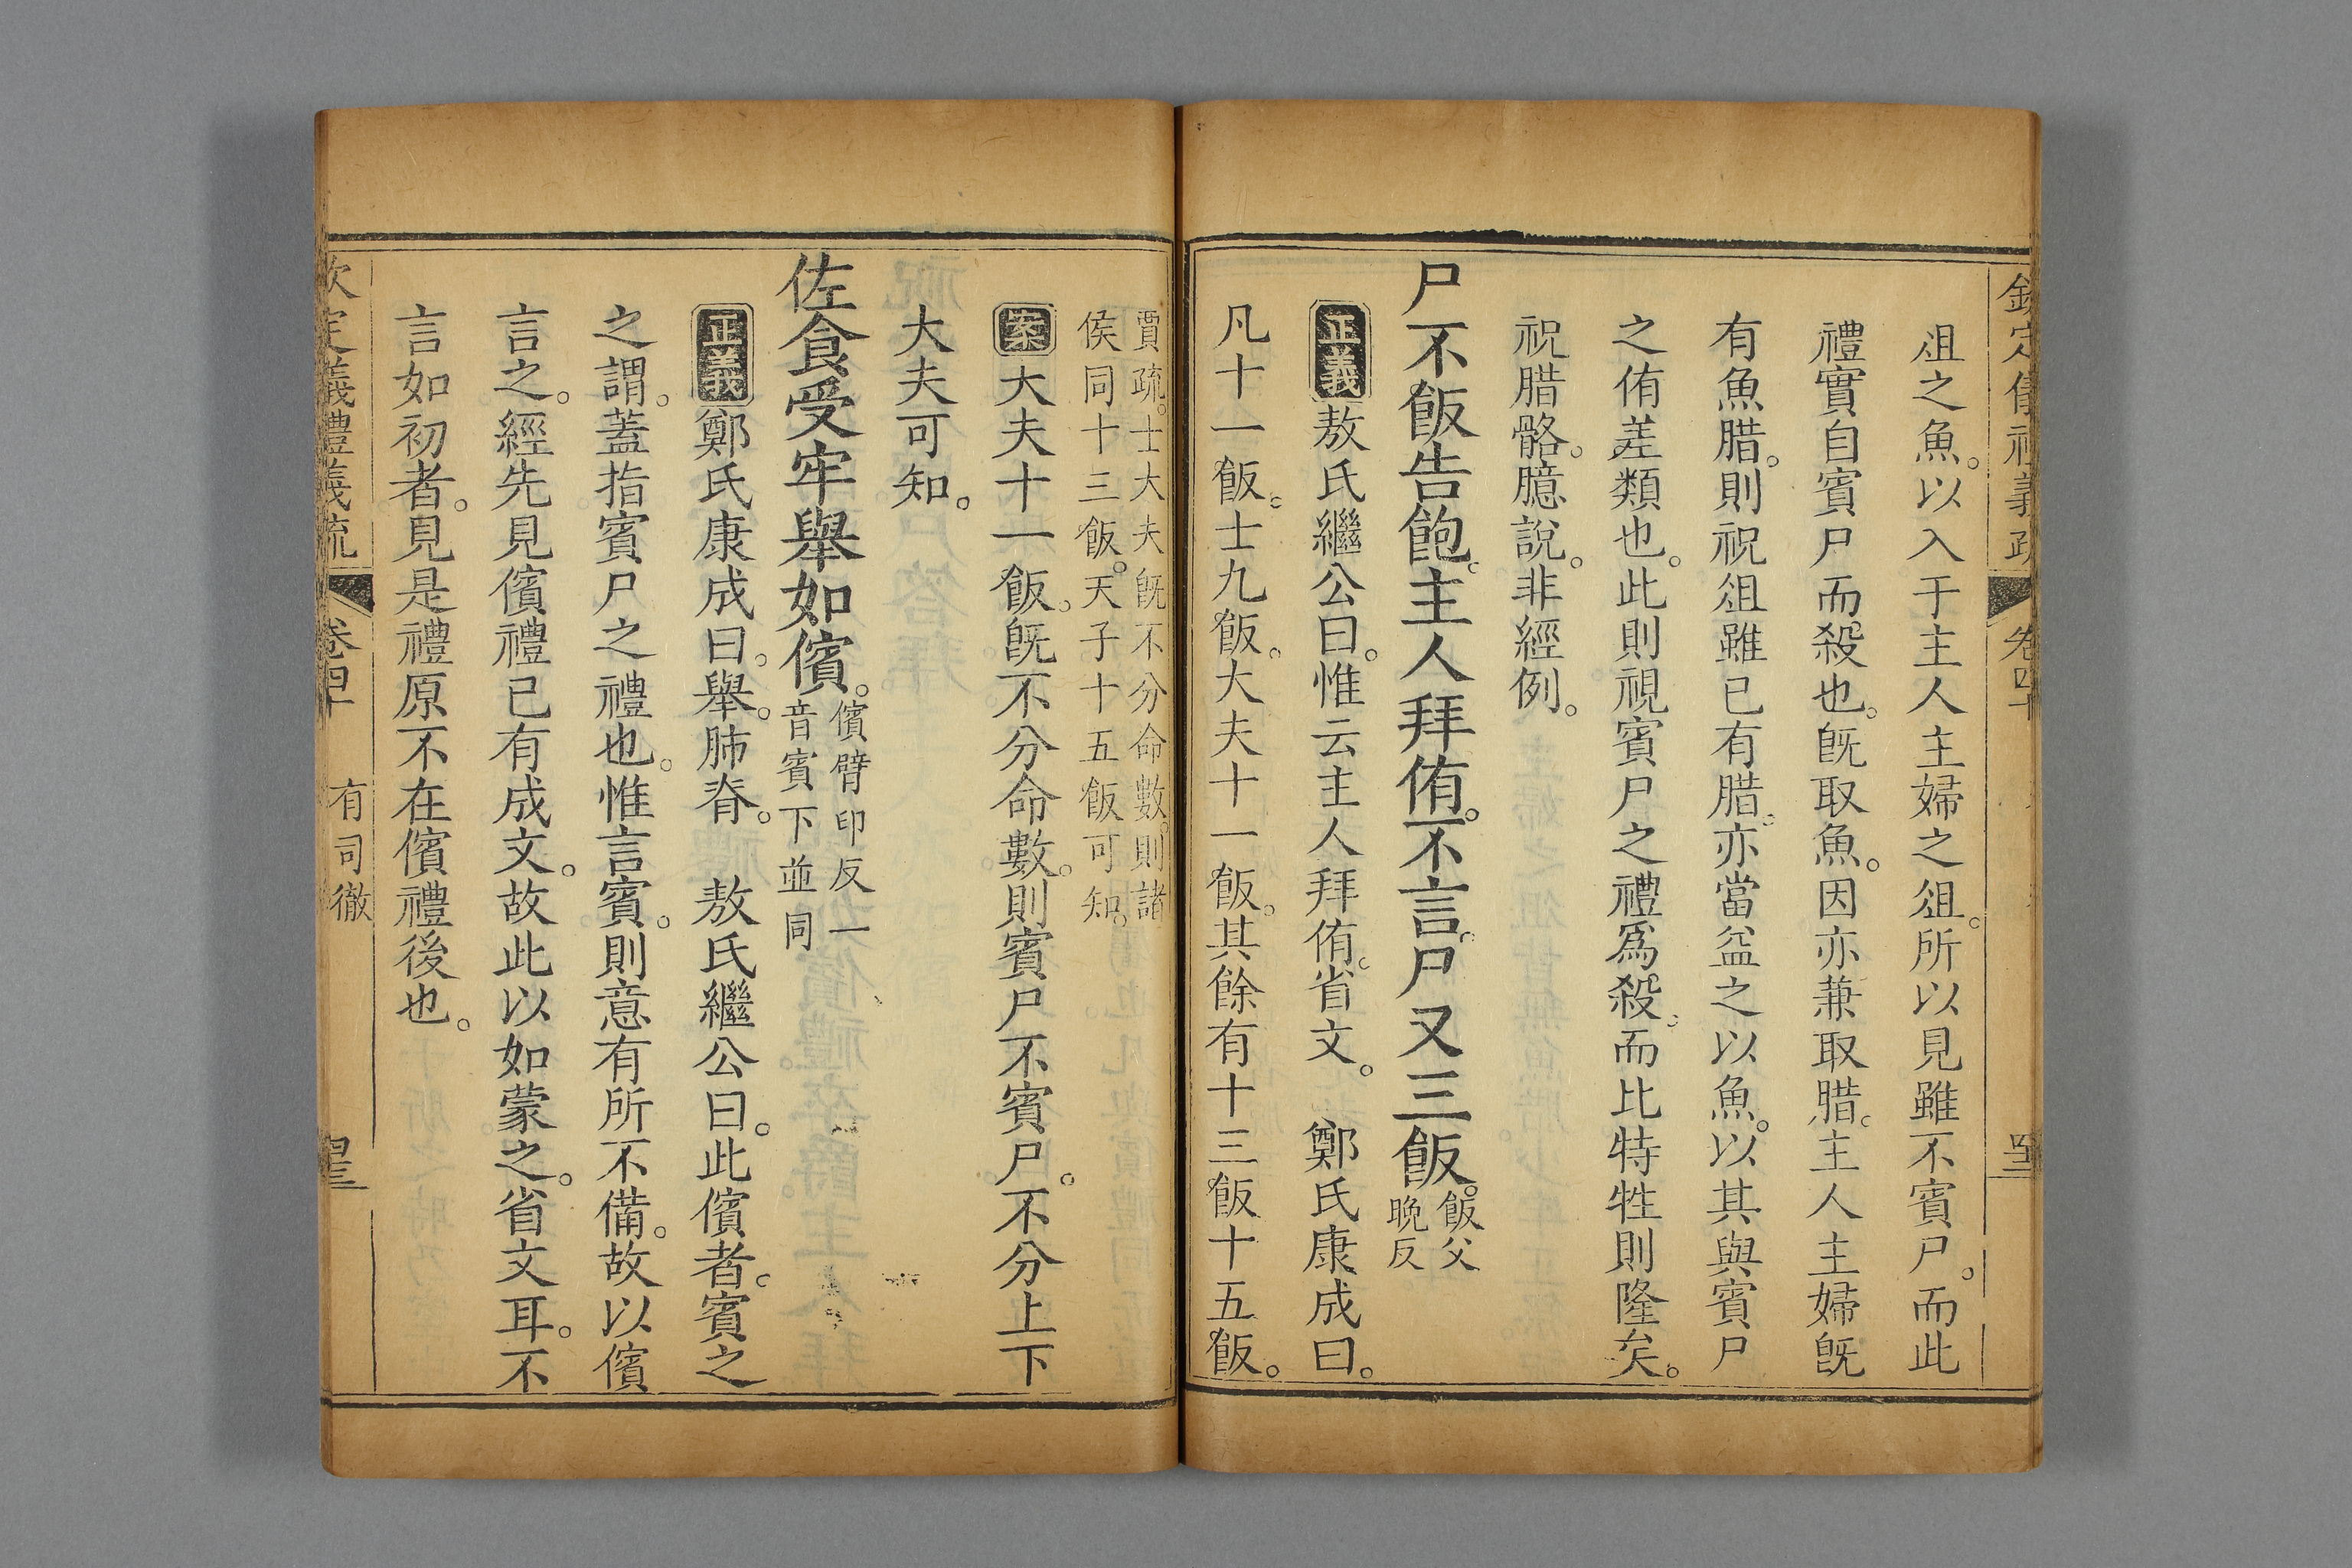 欽定儀禮義疏 卷四十
俎之魚。以入于主人主婦之俎。所以見雖不賓尸。而此
禮實自賓尸而殺也。旣取魚。因亦兼取腊。主人主婦旣
有魚腊。則祝俎雖已有腊。亦當益之以魚。以其與賓尸
之侑差類也。此則視賓尸之禮爲殺。而比特牲則隆矣。
祝腊骼。臆說。非經例。
尸不飯告飽。主人拜侑。不言。尸又三飯。飯父
晚反
正義敖氏繼公曰。惟云主人拜侑。省文。 鄭氏康成曰。
凡十一飯。士九飯。大夫十一飯。其餘有十三飯十五飯。
賈疏。士大夫旣不分命數。則諸
侯同十三飯。天子十五飯可知。
案大夫十一飯。旣不分命數。則賓尸不賓尸。不分上下
大夫可知。
佐食受牢舉如儐。儐臂印反劝一
音賓下並同
正義鄭氏康成曰。舉。肺脊。 敖氏繼公曰。此儐者。賓之
之謂。蓋指賓尸之禮也。惟言賓。則意有所不備。故以儐
言之。經先見儐禮已有成文。故此以如蒙之。省文耳。不
言如初者。見是禮原不在儐禮後也。
欽定義禮義疏 卷四十 有司徹